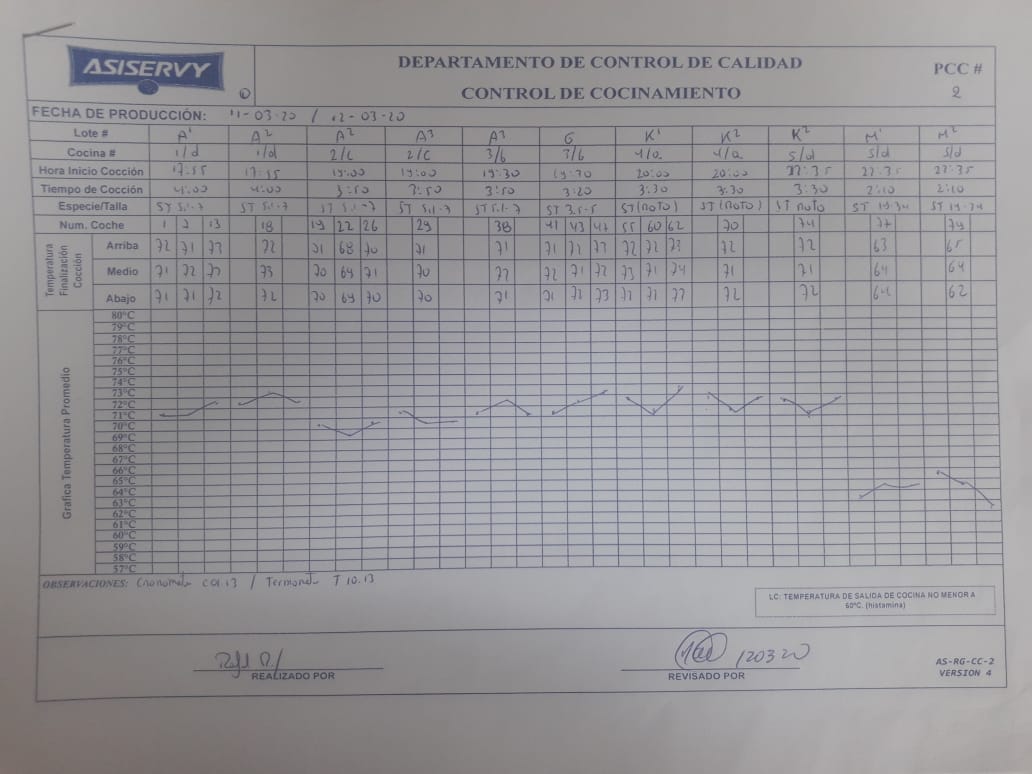 ASISERVY
DEPARTAMENTO DE CONTROL DE CALIDAD
CONTROL DE COCINAMIENTO
PCC #
2
FECHA DE PRODUCCIÓN: 11-03-20 / 12-03-20
Lote # A¹ A² A² A³ A³ G K¹ K² K² M¹ M²
Cocina # 1/d 1/d 2/c 2/c 3/b 3/b 4/a 4/a 5/d 5/d 5/d
Hora Inicio Cocción 17:55 17:55 19:00 19:00 19:30 19:30 20:00 20:00 22:35 22:35 22:35
Tiempo de Cocción 4:00 4:00 3:50 3:50 3:50 3:20 3:30 3:30 3:30 2:10 2:10
Especie/Talla ST 5.1-7 ST 5.1-7 ST 5.1-7 ST 5.1-7 ST 5.1-7 ST 3.5-5 ST (ROTO) ST (ROTO) ST ROTO ST ST
Num. Coche 1 7 13 18 19 22 26 29 38 41 43 47 55 60 62 70 74 77 79
Temperatura Finalización Cocción
Arriba 72 71 73 72 71 68 70 71 71 71 72 73 72 72 73 72 72 63 65
Medio 71 72 72 73 70 69 71 70 72 72 71 72 73 71 74 71 71 64 64
Abajo 71 71 72 72 70 69 70 70 71 71 72 73 72 71 72 72 72 64 62
Grafica Temperatura Promedio
80°C
79°C
78°C
77°C
76°C
75°C
74°C
73°C
72°C
71°C
70°C
69°C
68°C
67°C
66°C
65°C
64°C
63°C
62°C
61°C
60°C
59°C
58°C
57°C
OBSERVACIONES: Cronometro C01.13 / Termometro T10.13
LC: TEMPERATURA DE SALIDA DE COCINA NO MENOR A
60°C. (histamina)
120320
REALIZADO POR
REVISADO POR
AS-RG-CC-2
VERSION 4